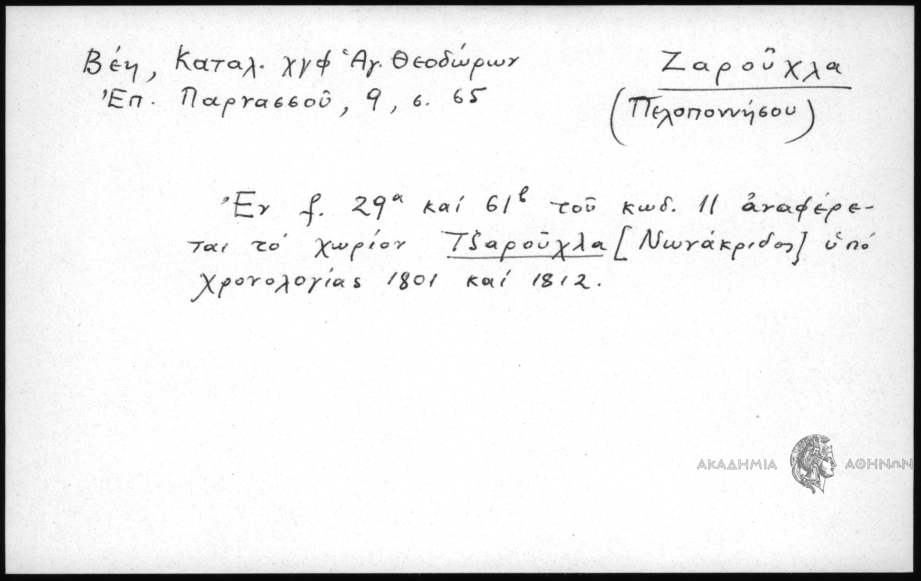 Βέη, Καταλ. χγφ Ἁγ. Θεοδώρων
Ἐπ. Παρνασσοῦ, 9, σ. 65
Ζαροῦχλα
(Πελοποννήσου)
Ἐν f. 29α καί 61β τοῦ κωδ. 11 ἀναφέρε-
ται τό χωρίον Τζαροῦχλα [Νωνάκριδος] ὑπό
χρονολογίας 1801 καί 1812.
ΑΚΑΔΗΜΙΑ ΑΘΗΝΩΝ